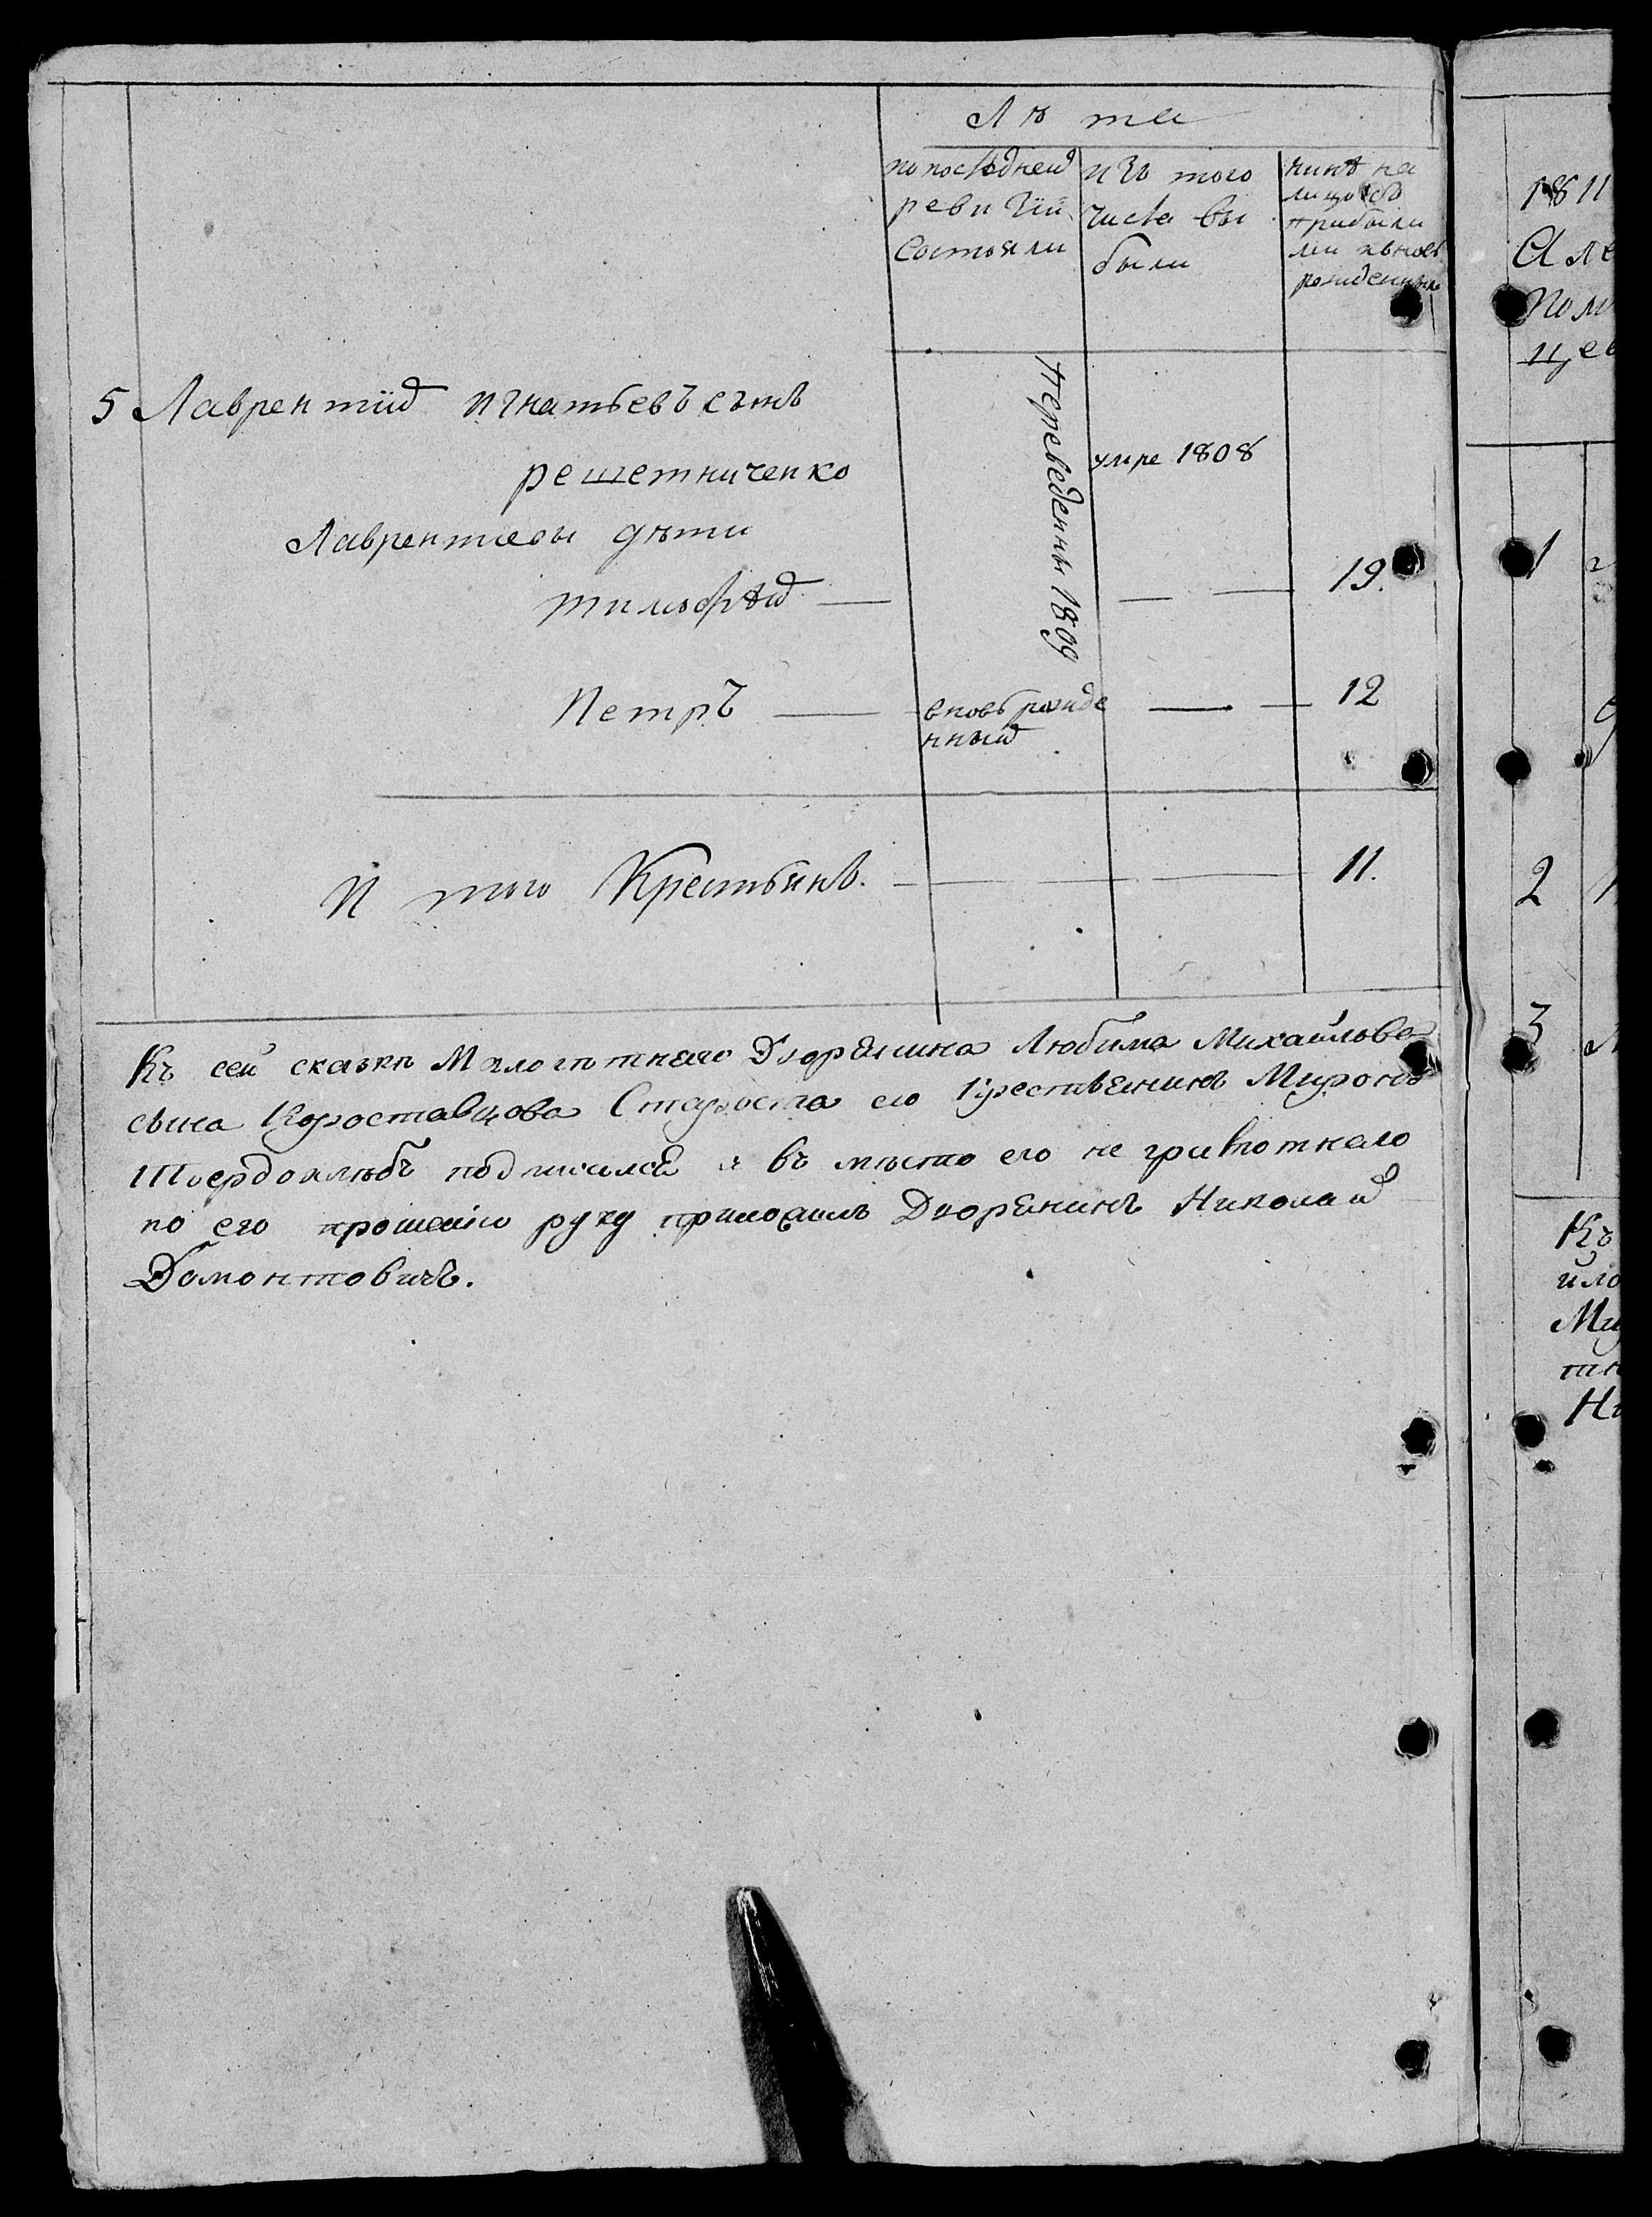 Лѣта
по последней
ревизїи
состояли
изъ того
числа вы
были
нинѣ на
лицо съ
прибылы
ми и вновь
рожденными
5 Лаврентїй игнатьевъ сынъ
решетниченко
умре 1808
Переведенны 1809
Лаврентиевы дѣти
тимофѣй — — — 19.
Петръ — вновь рожде
нный — — 12
И того Крестьянъ. — — — 11.
Къ сей сказки Малолѣтнего Дворянина Любима Михайлова
сына Коростовцова Староста его Крественинъ Миронъ
Твердохлѣбъ подписался а въ мѣсто его не грамотнаго
по его прошенїю руку приложилъ Дворянинъ Николай
Домонтовичъ.
1811
Але
Пом
щев
1
2
3
Къ
йло
Ми
тн
Ни